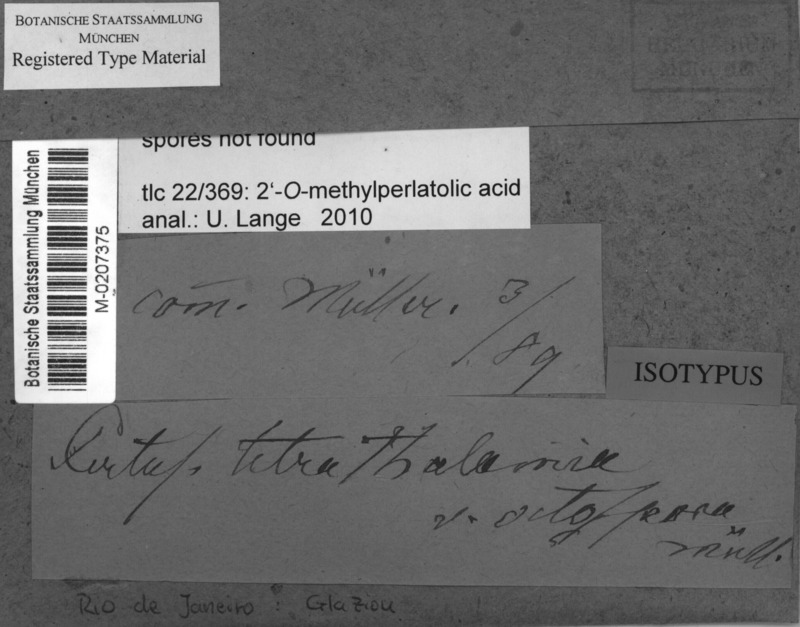 BOTANISCHE STAATSSAMMLUNG
MÜNCHEN
Registered Type Material
spores not found
tlc 22/369: 2‘-O-methylperlatolic acid
anal.: U. Lange 2010
Botanische Staatssammlung München
M-0207375
com. Müller. 3/89
ISOTYPUS
Pertus. tetrathalamia
v. octospora
Müll.
Rio de Janeiro: Glaziou